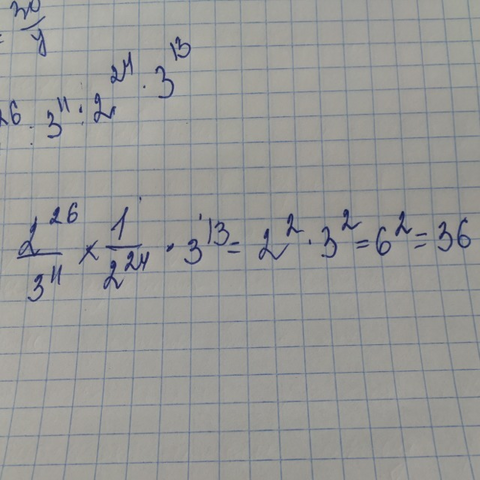 26 : 3^11 : 2^24 · 3^13
2^26/3^11 × 1/2^24 · 3^13 = 2^2 · 3^2 = 6^2 = 36